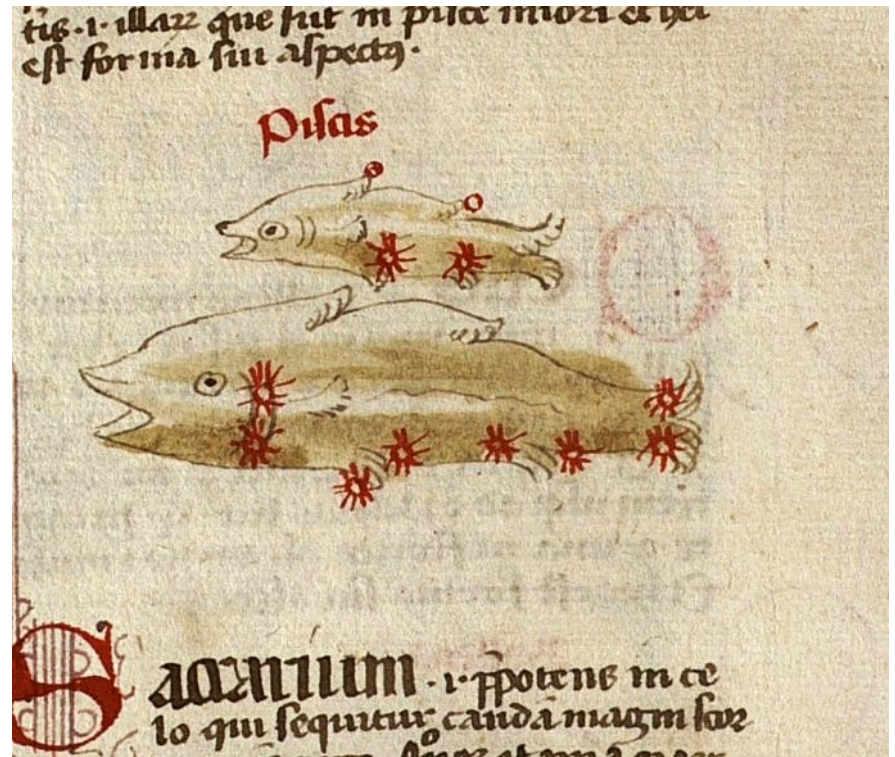 tis .i. illaꝝ que sut in pisce miori et hec
est forma sui aspectꝰ.
Piscis
Sacrarium .i. p̄potens in ce
lo qui sequitur caudā magni scor